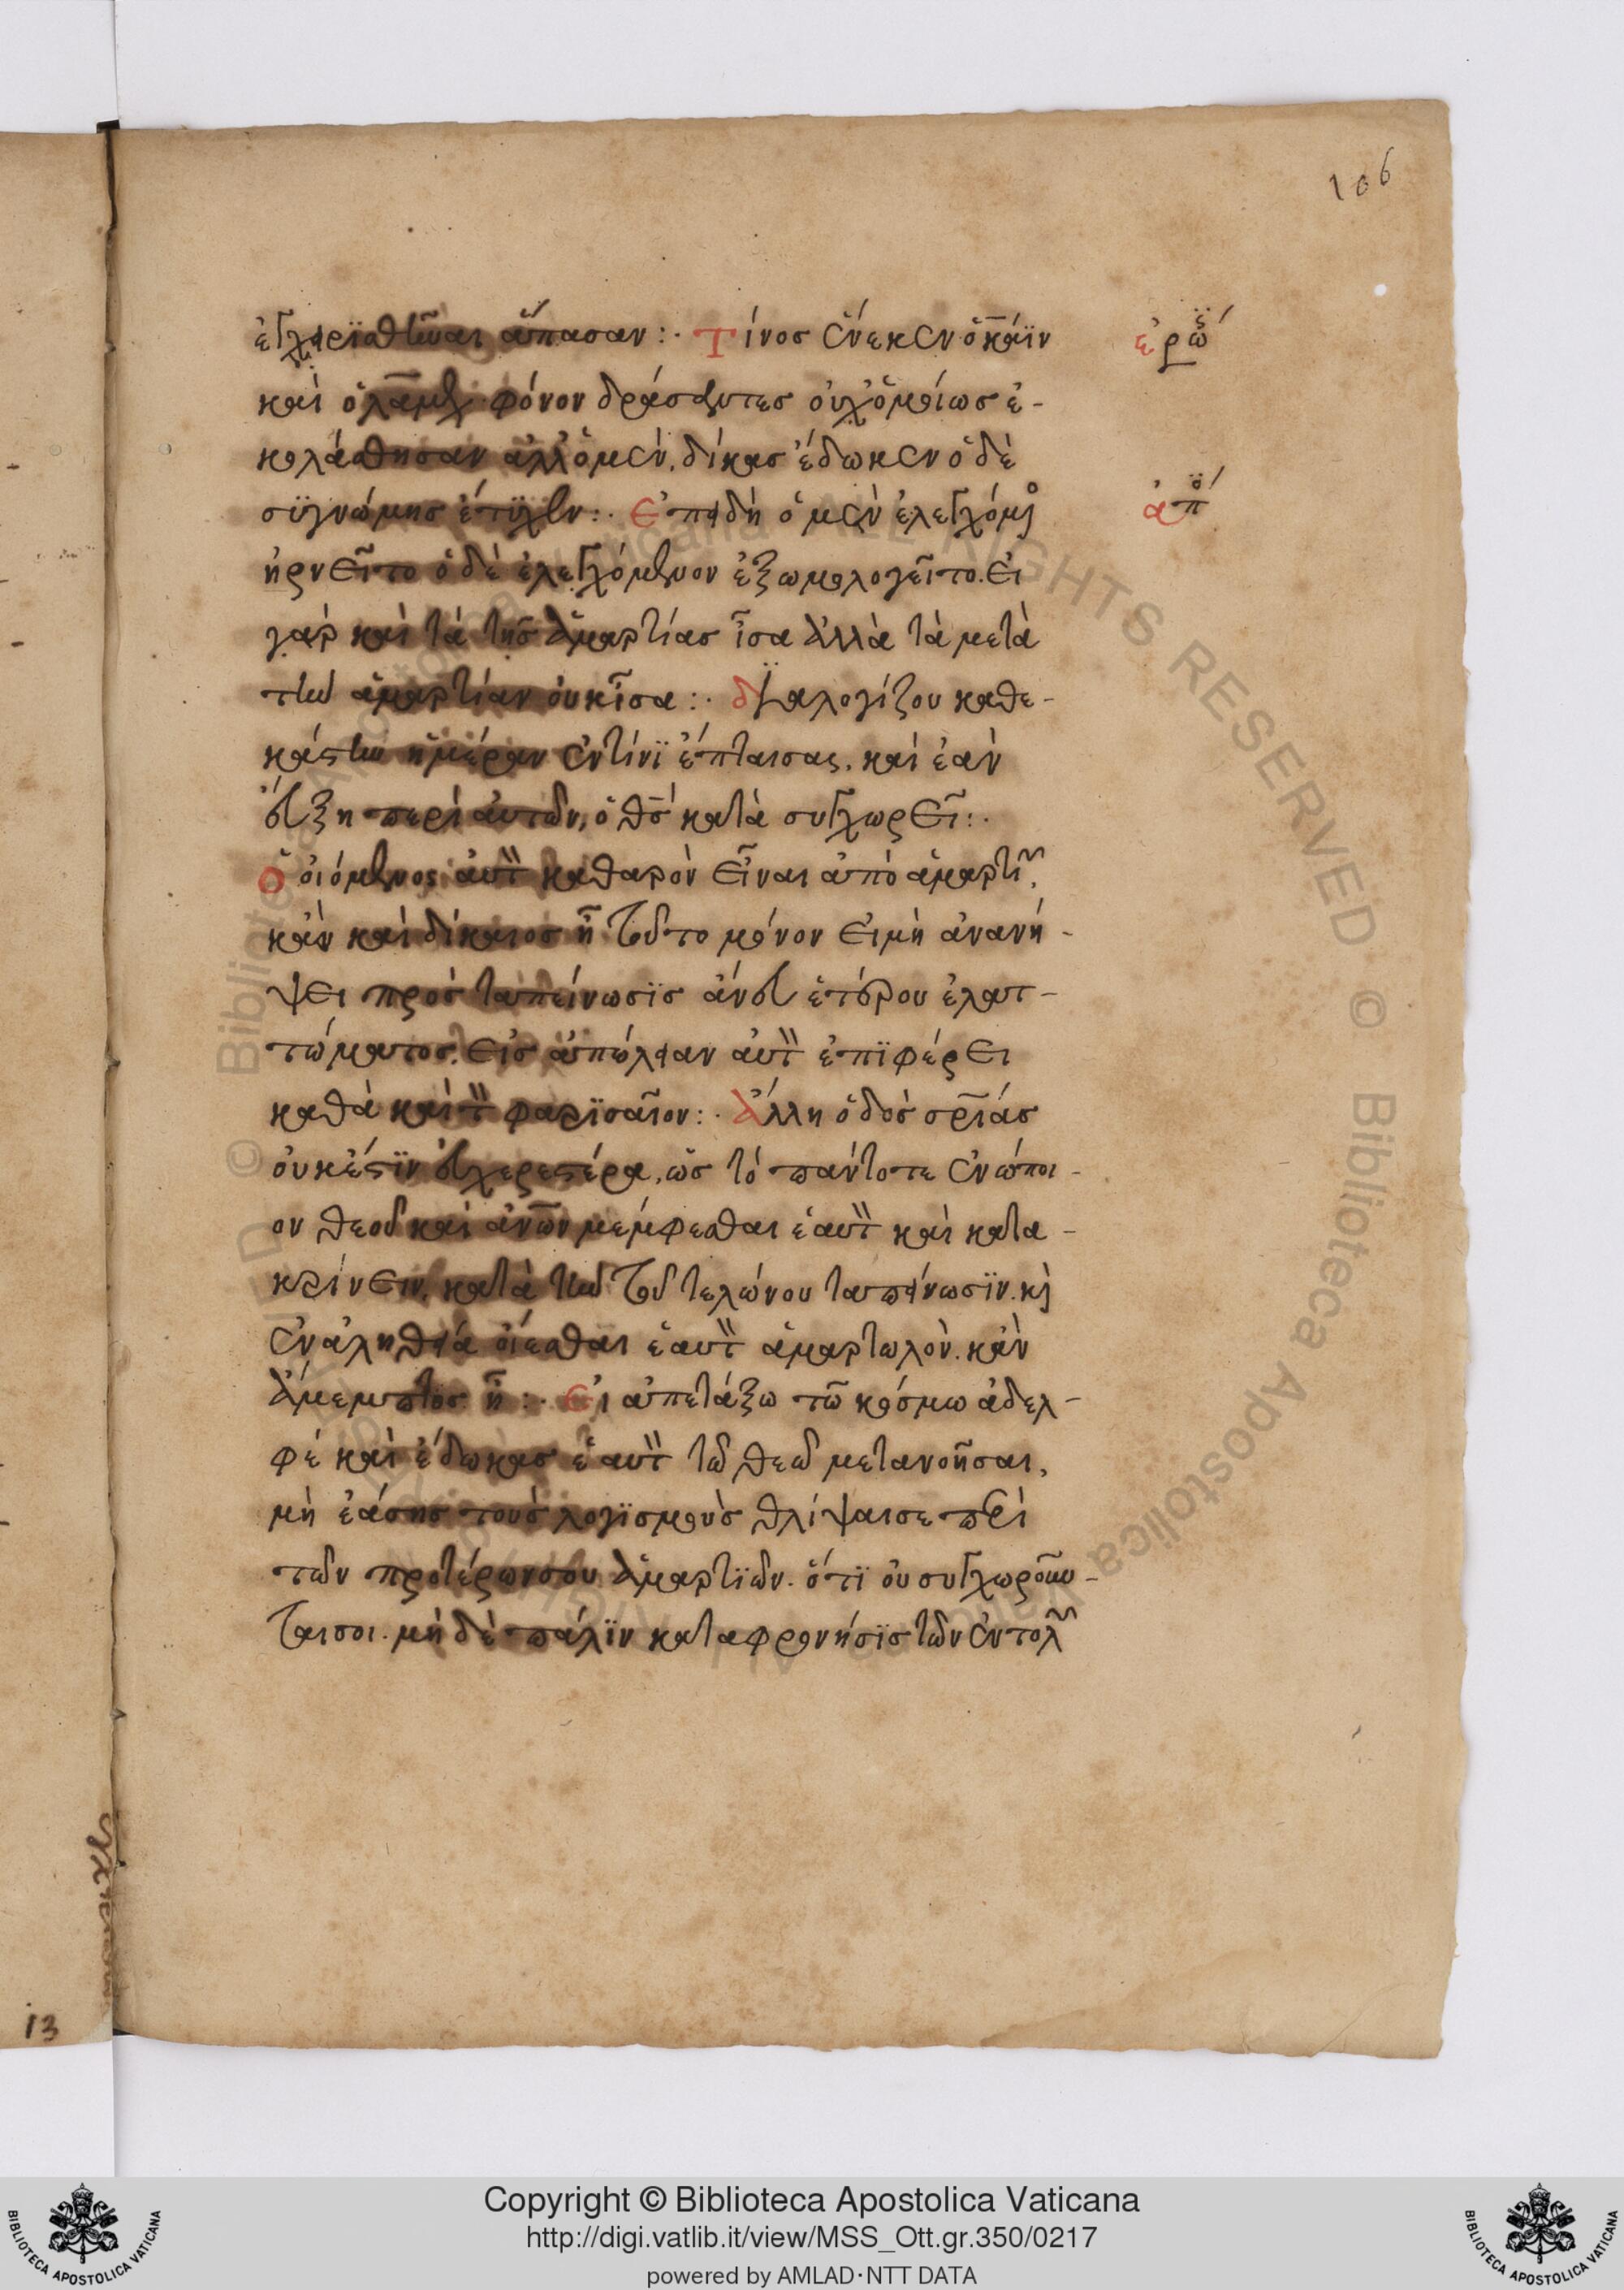 106
ἐγχειρϊσθῆναι ἅπασαν :· Τίνος ἕνεκεν ὁ κάϊν
ἐρώ
καὶ ὁ λάμεχ φόνον δράσαντες οὐχ ὁμοίως ἐ-
κολάσθησαν ἀλλ ὁ μὲν, δίκας ἔδωκεν ὁ δὲ
συγνώμης ἔτϋχεν :· Ἐπειδὴ ὁ μὲν ἐλεγχόμ
ἀπ
ἠρνεῖτο ὁ δὲ ἐλεγχόμενον ἐξωμολογεῖτο. Εἰ
γὰρ καὶ τὰ τῆς ἁμαρτίας ἶσα ἀλλὰ τὰ μετὰ
τὴν ἁμαρτίαν οὐκ ἶσα :· διαλογίζου καθε-
κάστην ἡμέραν ἐν τίνϊ ἔπταισας. καὶ ἐὰν
εὔξη περὶ αὐτῶν, ὁ θς κατὰ συγχωρεῖ :·
Ὁ οἰόμενος αὐτ καθαρὸν εἶναι ἀπὸ ἁμαρτι,
κἂν καὶ δίκαιος ἦ τοῦτο μόνον εἰ μὴ ἀνανή-
ψει πρὸς ταπείνωσϊς ἄνευ ἑτέρου ἐλατ-
τώματος. εἰς ἀπώλειαν αὐτ ἐπϊφέρει
καθὰ καὶ τ φαρϊσαῖον :· Ἄλλη ὁδὸς σρίας
οὐκ ἔστϊν εὐχερεστέρα, ὡς τὸ πάντοτε ἐνώπι-
ον θεοῦ καὶ ἀνων μέμφεσθαι ἑαυτ καὶ κατα-
κρίνειν, κατὰ τὴν τοῦ τελώνου ταπείνωσϊν. κὶ
ἐν ἀληθεία οἴεσθαι ἑαυτ ἁμαρτωλὸν. κἂν
ἄμεμπτος ἦ :· Εἰ ἀπετάξω τῶ κόσμω ἀδελ-
φὲ καὶ ἔδωκας ἑαυτ τῶ θεῶ μετανοῆσαι,
μὴ ἐάσης τοὺς λογϊσμοὺς θλίψαι σε περὶ
τῶν προτέρων σου ἁμαρτϊῶν. ὅτϊ οὐ συγχωροῦν-
ται σοι. μὴ δὲ πάλϊν καταφρονήσϊς τῶν ἐντολ
13
Copyright © Biblioteca Apostolica Vaticana
http://digi.vatlib.it/view/MSS_Ott.gr.350/0217
powered by AMLAD·NTT DATA